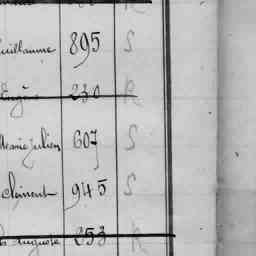 Guillaume 895 S
Eugène 230 R
Marie Julien 607 S
Clément 945 S
Auguste 253 R